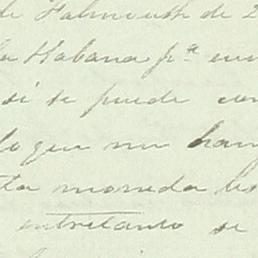 de Falmouth de 2
la Habana pª
si se puede con
lo que me hay
ta moneda
entretanto se